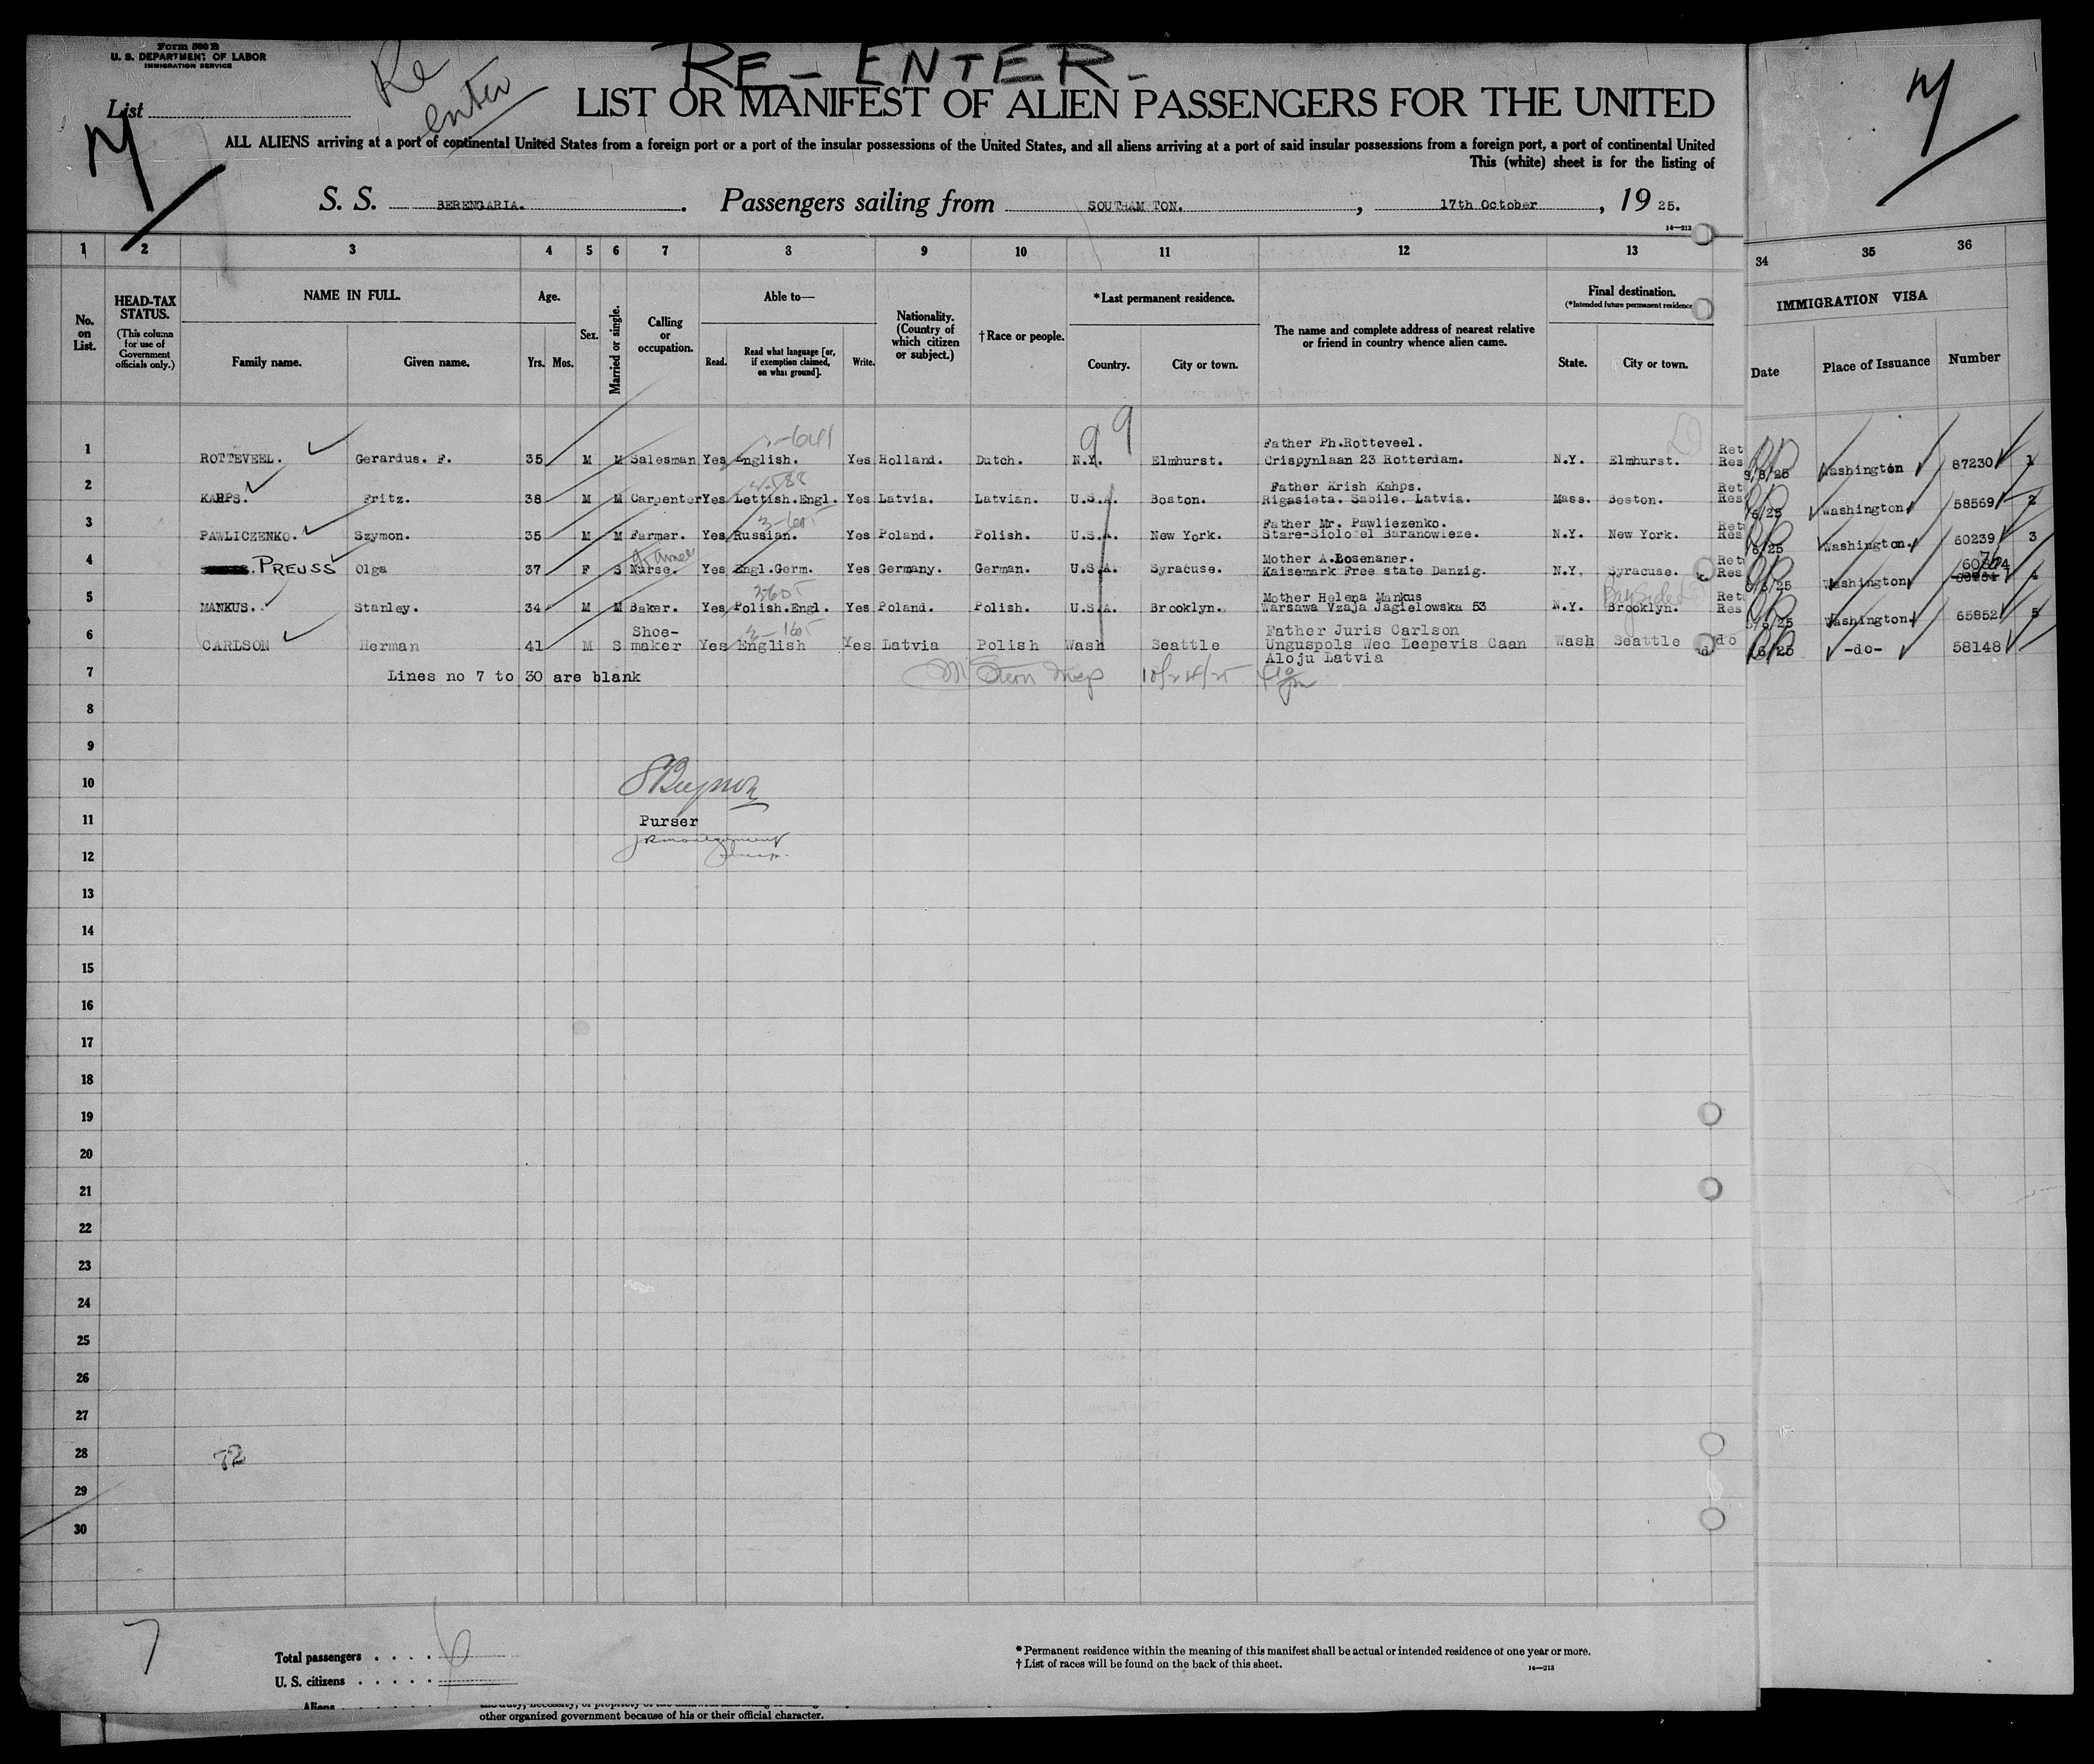 Form 500 B
U. S. DEPARTMENT OF LABOR
IMMIGRATION SERVICE
Re
enter
RE - ENTER -
List
LIST OR MANIFEST OF ALIEN PASSENGERS FOR THE UNITED
ALL ALIENS arriving at a port of continental United States from a foreign port or a port of the insular possessions of the United States, and all aliens arriving at a port of said insular possessions from a foreign port, a port of continental United
This (white) sheet is for the listing of
S. S. BERENGARIA. Passengers sailing from SOUTHAM TON. , 17th October , 19 25.
14—213
1 2 3 4 5 6 7 8 9 10 11 12 13 34 35 36
No. on List.
HEAD-TAX STATUS. (This column for use of Government officials only.)
NAME IN FULL.
Family name. Given name.
Age.
Yrs. Mos.
Sex.
Married or single.
Calling or occupation.
Able to—
Read. Read what language [or, if exemption claimed, on what ground]. Write.
Nationality. (Country of which citizen or subject.)
†Race or people.
*Last permanent residence.
Country. City or town.
The name and complete address of nearest relative or friend in country whence alien came.
Final destination.
(*Intended future permanent residence
State. City or town.
IMMIGRATION VISA
Date Place of Issuance Number
99
1 ROTTEVEEL. Gerardus. F. 35 M M Salesman Yes English. Yes Holland. Dutch. N.Y. Elmhurst. Father Ph.Rotteveel. Crispynlaan 23 Rotterdam. N.Y. Elmhurst. Ret Res Washington 87230 1
2 KAHPS. Fritz. 38 M M Carpenter Yes Lettish.Engl. Yes Latvia. Latvian. U.S.A. Boston. Father Krish Kahps. Rigasieta. Sabile. Latvia. Mass. Boston. Ret Res Washington 58569 2
3 PAWLICZENKO. Szymon. 35 M M Farmer. Yes Russian. Yes Poland. Polish. U.S.A. New York. Father Mr. Pawliezenko. Stare-Siolo el Baranowieze. N.Y. New York. Ret Res Washington. 60239 3
4 PREUSS Olga 37 F S Nurse. Yes Engl.Germ. Yes Germany. German. U.S.A. Syracuse. Mother A.Bosenaner. Kaisemark Free state Danzig. N.Y. Syracuse. Ret Res Washington 4
Bayside
5 MANKUS. Stanley. 34 M M Baker. Yes Polish.Engl. Yes Poland. Polish. U.S.A. Brooklyn. Mother Helena Mankus Warsawa Vzaja Jagielowska 53 N.Y. Brooklyn. Ret Res Washington 65852 5
6 CARLSON Herman 41 M S Shoe-maker Yes English Yes Latvia Polish Wash Seattle Father Juris Carlson Unguspols Wec Leepevis Caan Aloju Latvia Wash Seattle do -do- 58148
7 Lines no 7 to 30 are blank
10/24/25
8
9
10
11 Purser
12
13
14
15
16
17
18
19
20
21
22
23
24
25
26
27
28 72
29
30
7
Total passengers . . . . 6
U. S. citizens . . . . .
Aliens
*Permanent residence within the meaning of this manifest shall be actual or intended residence of one year or more.
†List of races will be found on the back of this sheet.
14—213
other organized government because of his or their official character.